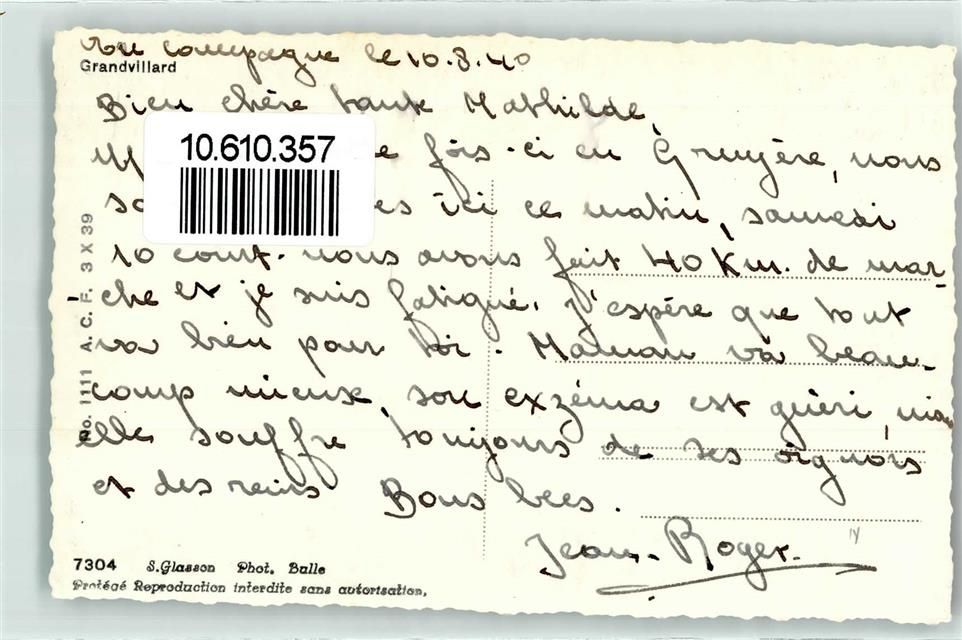 compagne le 10.8.40
Grandvillard
Bien chère tante Mathilde,
10.610.357
fois-ci en Gruyère, nous
ici ce matin, samedi
10 court. nous avons fait 40 Km. de mar-
che et je suis fatigué. J'espère que tout
va bien pour toi. Maman va beau-
coup mieux, son exzéma est guéri, mais
elle souffre toujours de ses oignons
et des reins Bons becs.
Jean-Roger.
No. 1111 A. C. F. 3 X 39
7304 S. Glasson Phot. Bulle
Protégé Reproduction interdite sans autorisation.